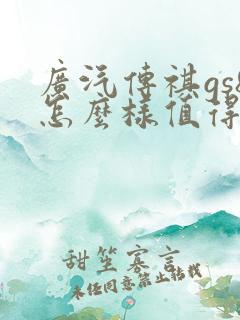 廣汽傳祺gs8
怎麼樣值得
甜笙寡言
未經同意禁止轉載